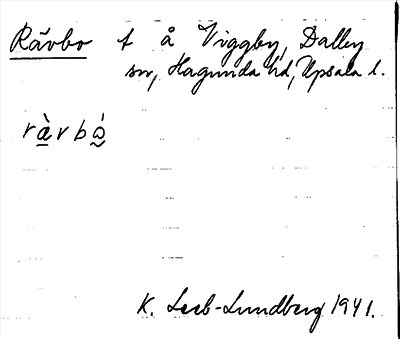 Rävbo t å Viggby, Dalby
sn, Hagunda hd, Upsala l.
ràrbó
K. Leeb-Lundberg 1941.